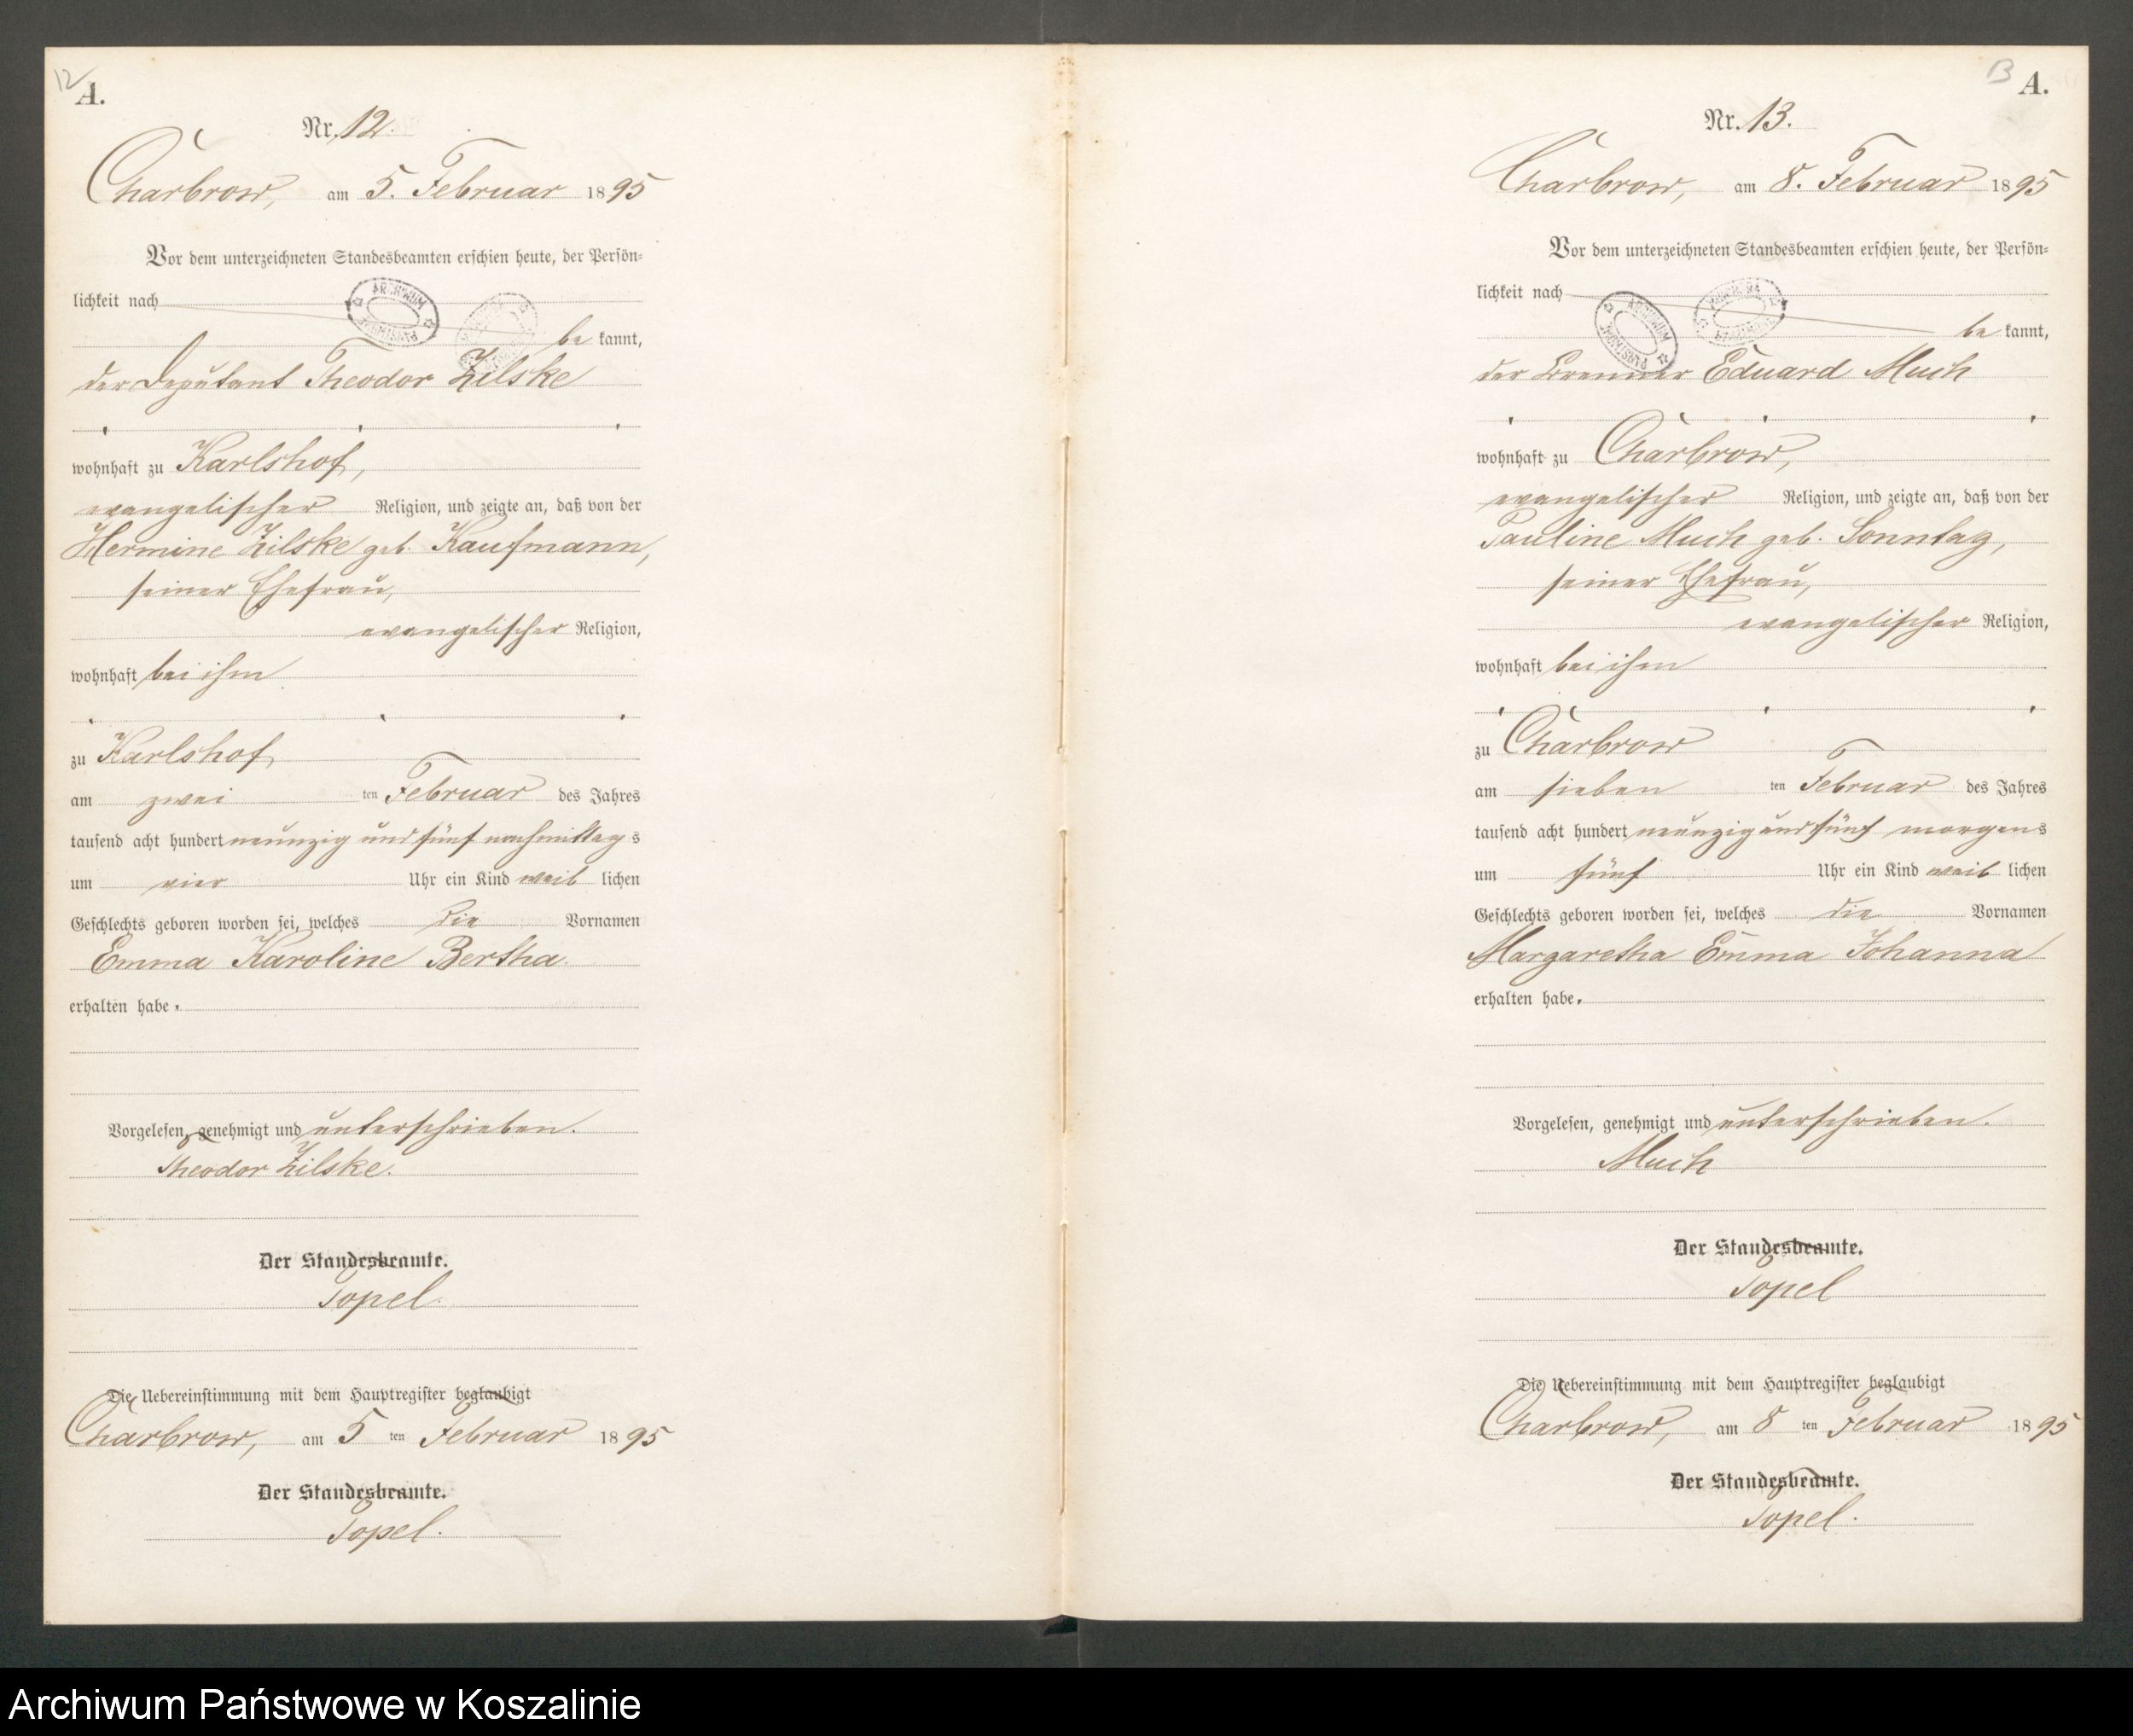 12
A.
Nr. 12.
Charbrow, am 5. Februar 1895
Vor dem unterzeichneten Standesbeamten erschien heute, der Persön-
lichkeit nach
ARCHIWUM PAŃSTWOWE
be kannt,
der Deputant Theodor Zilske
wohnhaft zu Karlshof,
evangelischer Religion, und zeigte an, daß von der
Hermine Zilske geb. Kaufmann,
seiner Ehefrau,
evangelischer Religion,
wohnhaft bei ihm
zu Karlshof
am zwei ten Februar des Jahres
tausend acht hundert neunzig und fünf nachmittags
um vier Uhr ein Kind weib lichen
Geschlechts geboren worden sei, welches die Vornamen
Emma Karoline Bertha
erhalten habe.
Vorgelesen, genehmigt und unterschrieben.
Theodor Zilske.
Der Standesbeamte.
Topel.
Die Uebereinstimmung mit dem Hauptregister beglaubigt
Charbrow, am 5 ten Februar 1895
Der Standesbeamte.
Topel.
13
A.
Nr. 13.
Charbrow, am 8. Februar 1895
Vor dem unterzeichneten Standesbeamten erschien heute, der Persön-
lichkeit nach
ARCHIWUM PAŃSTWOWE
be kannt,
der Brenner Eduard Much
wohnhaft zu Charbrow,
evangelischer Religion, und zeigte an, daß von der
Pauline Much geb. Sonntag,
seiner Ehefrau,
evangelischer Religion,
wohnhaft bei ihm
zu Charbrow
am sieben ten Februar des Jahres
tausend acht hundert neunzig und fünf morgens
um fünf Uhr ein Kind weib lichen
Geschlechts geboren worden sei, welches die Vornamen
Margaretha Emma Johanna
erhalten habe.
Vorgelesen, genehmigt und unterschrieben.
Much
Der Standesbeamte.
Topel
Die Uebereinstimmung mit dem Hauptregister beglaubigt
Charbrow, am 8 ten Februar 1895
Der Standesbeamte.
Topel.
Archiwum Państwowe w Koszalinie